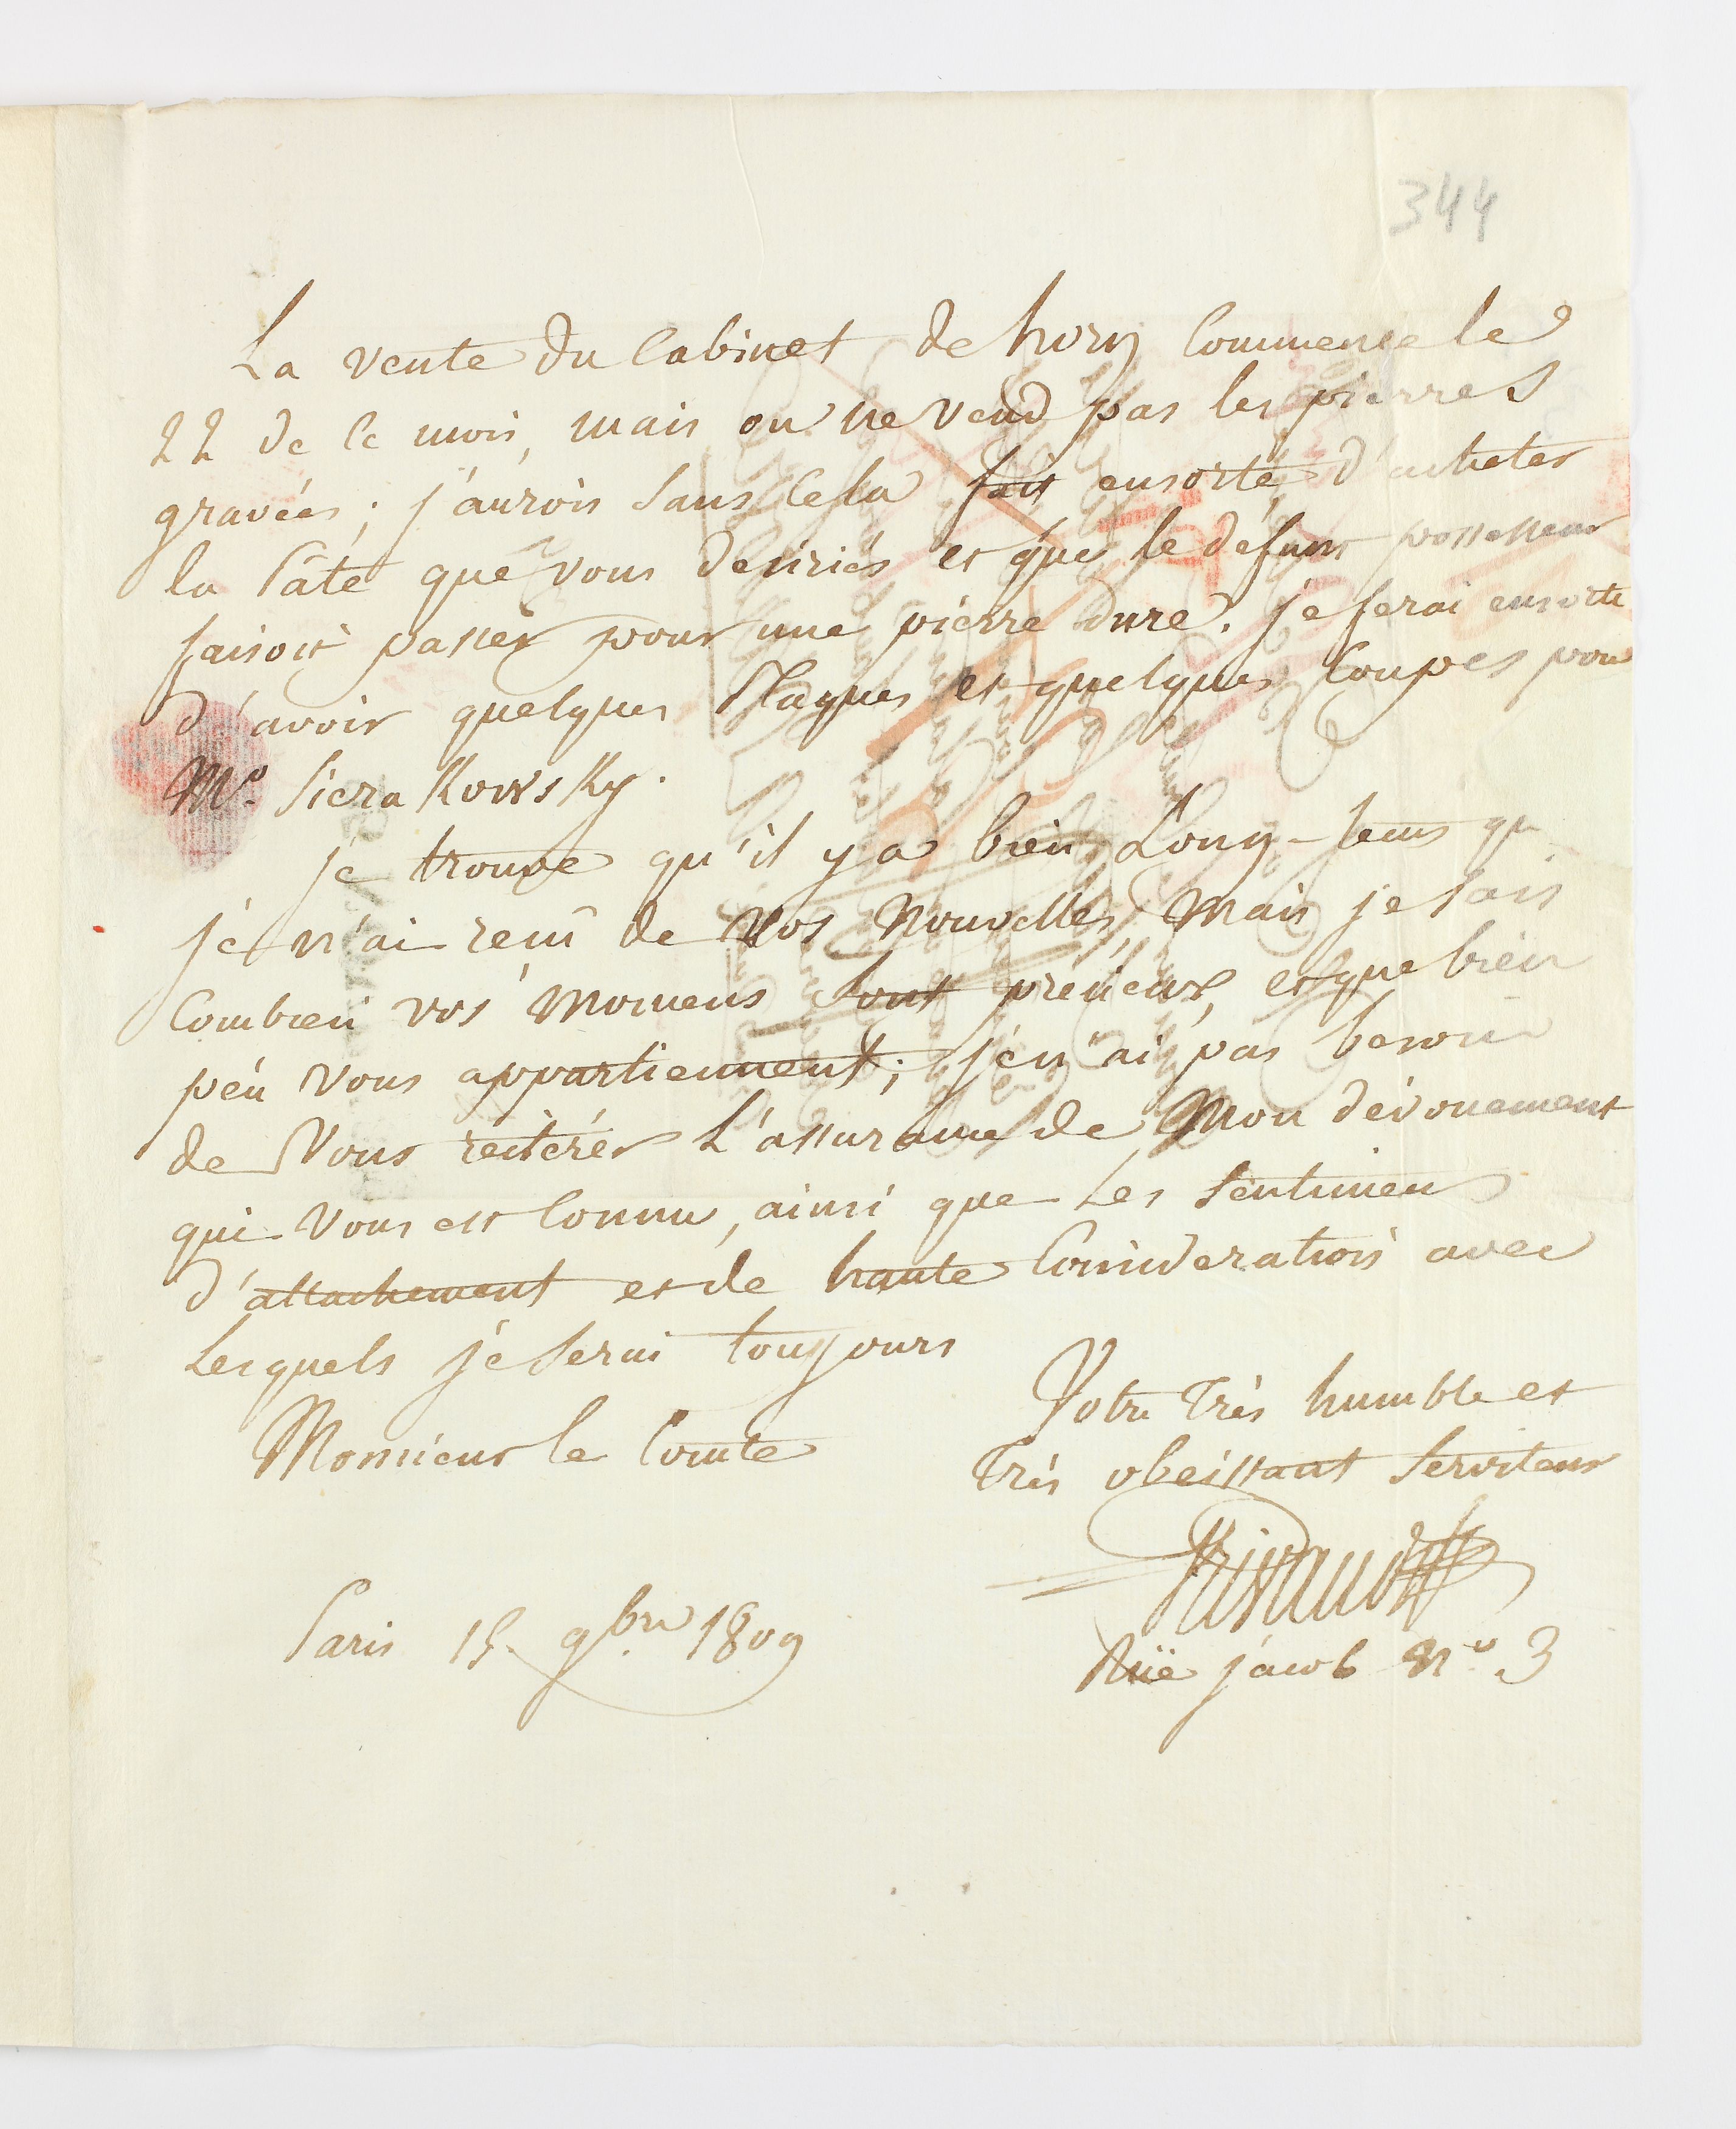 344
La vente du Cabinet de horn Commence le
22 de ce mois, mais on ne vend pas les pierres
gravées; j'aurois sans cela fait ensorte d'acheter
la Pâte que vous desiriés et que le défunt possesseur
faisoit passer pour une pierre dure. je ferai ensorte
d'avoir quelques Plaques et quelques Coupes pour
Mr. Sierakowsky.
je trouve qu'il y a bien Long-tems qu
je n'ai reçu de vos Nouvelles, Mais je sais
Combien vos Momens sont précieux, et que bien
peu vous appartiennent; je n'ai pas besoin
de Vous reitérer L'assurance de Mon dévouement
qui Vous est Connu, ainsi que Les sentimens
d'attachement et de haute Consideration avec
Lesquels je serai toujours
Monsieur le Comte
Votre très humble et
très obeissant Serviteur
Paris 15. 9bre 1809
Rüe jacob No. 3